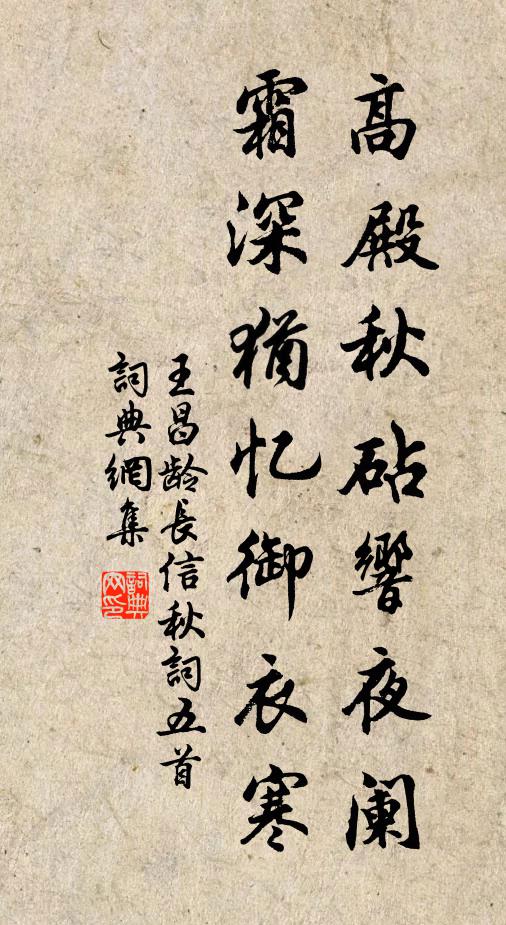 高殿秋砧響夜阑
霜深猶忆御衣寒
王昌龄長信秋詞五首
詞典網集
詞典网印